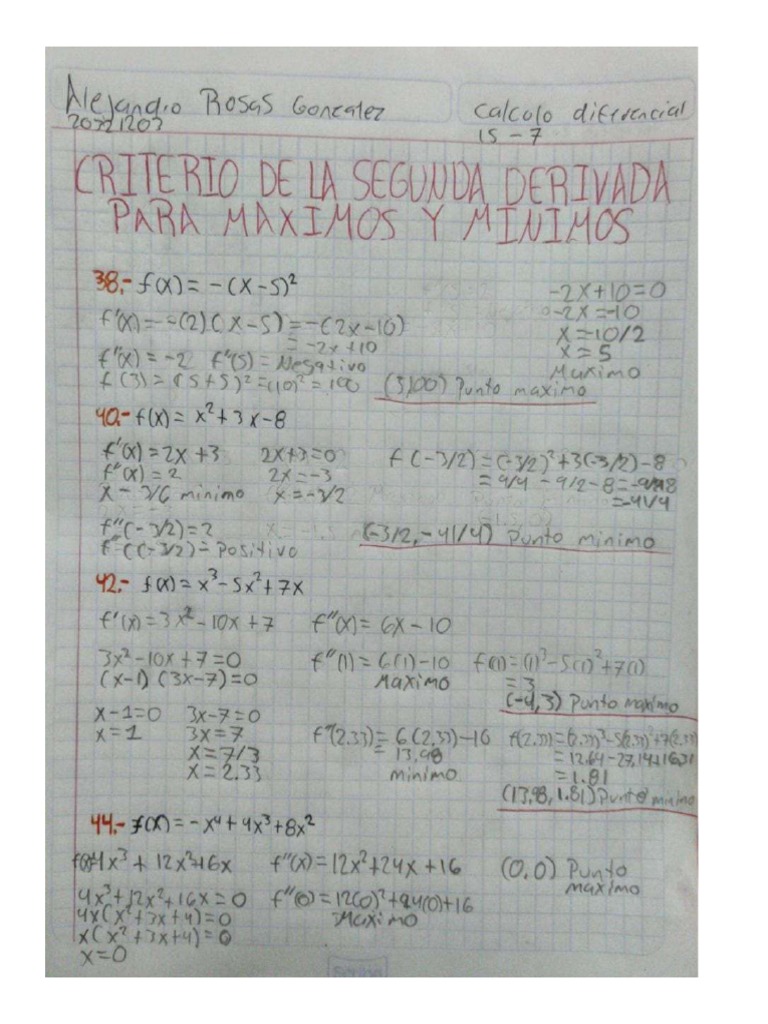 Alejandro Rosas Gonzalez
Calculo diferencial
15-7
CRITERIO DE LA SEGUNDA DERIVADA
PARA MAXIMOS Y MINIMOS
38.- f(x) = -(x-5)²
-2x+10=0
-2x=-10
x=10/2
x=5
Maximo
f'(x)=-(2)(x-5)=-(2x-10)
=-2x+10
f''(x)=-2 f''(5)=Negativo
f(3)=(5+5)²=(10)²=100 (5,100) Punto maximo
40.- f(x) = x²+3x-8
f'(x)=2x+3 2x+3=0 f(-3/2)=(-3/2)²+3(-3/2)-8
f''(x)=2 2x=-3 =9/4-9/2-8=
x-3/6 minimo x=-3/2 =-41/4
f''(-3/2)=2 (-3/2,-41/4) Punto minimo
f''((-3/2)=Positivo
42.- f(x)=x³-5x²+7x
f'(x)=3x²-10x+7 f''(x)=6x-10
3x²-10x+7=0 f''(1)=6(1)-10 f(1)=(1)³-5(1)²+7(1)
(x-1)(3x-7)=0 Maximo =3
(-4,3) Punto maximo
x-1=0 3x-7=0
x=1 3x=7 f''(2.33)=6(2.33)-10 f(2.33)=(2.33)³-5(2.33)²+7(2.33)
x=7/3 =13.98 =12.64-27.14+16.31
x=2.33 minimo =1.81
(13.98,1.81) Punto minimo
44.- f(x)=-x⁴+4x³+8x²
4x³+12x²+16x f''(x)=12x²+24x+16 (0,0) Punto
maximo
4x³+12x²+16x=0 f''(0)=12(0)²+24(0)+16
4x(x²+3x+4)=0 Maximo
x(x²+3x+4)=0
x=0